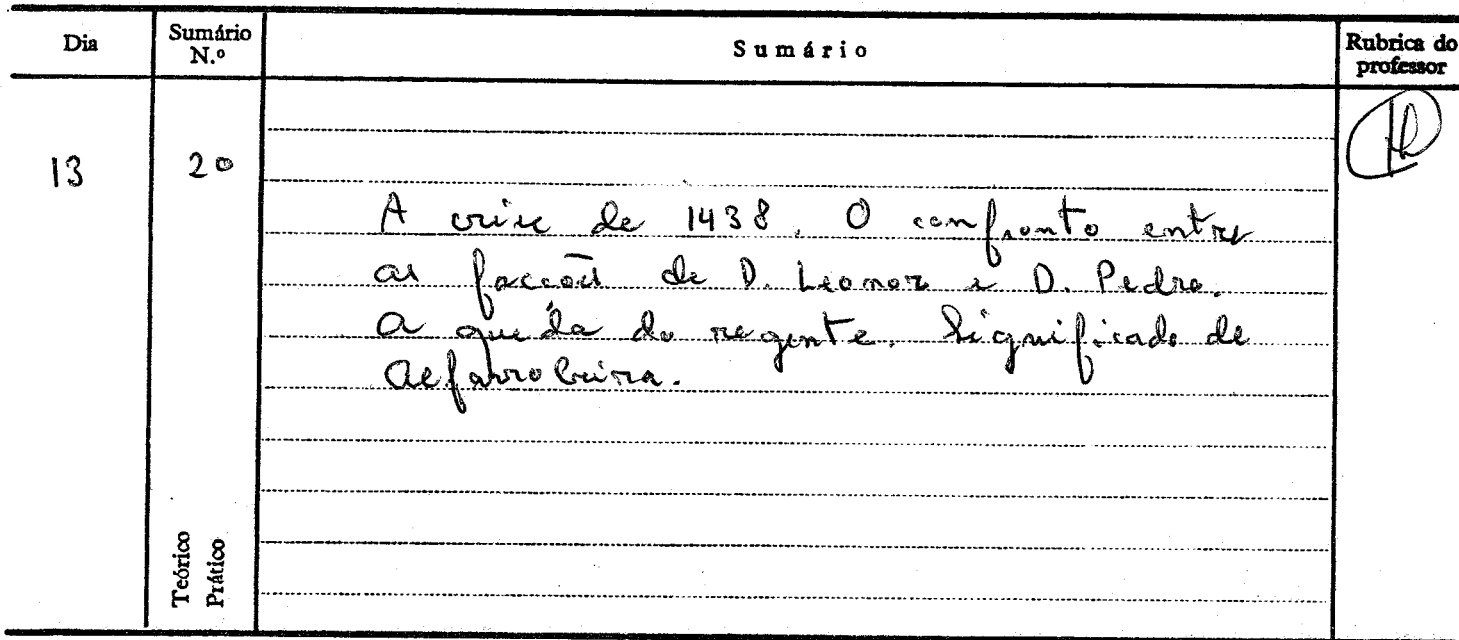 Dia
Sumário
N.º
Sumário
Rubrica do
professor
13
20
A crise de 1438. O confronto entre
as facções de D. Leonor e D. Pedro.
A queda do regente. Significado de
Alfarrobeira.
Teórico
Prático